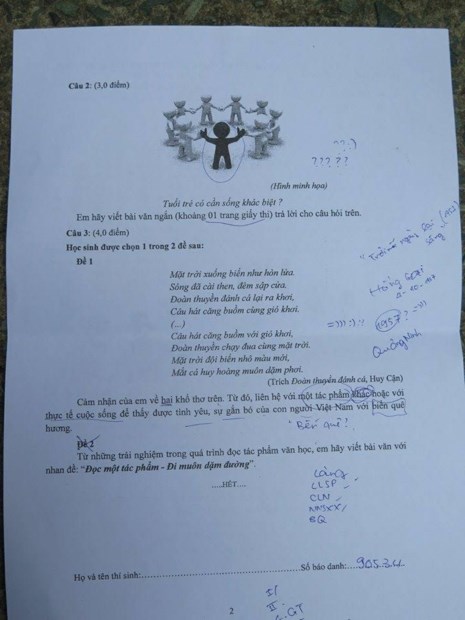 Câu 2: (3,0 điểm)
??:)
?? ? ?
(Hình minh họa)
Tuổi trẻ có cần sống khác biệt ?
Em hãy viết bài văn ngắn (khoảng 01 trang giấy thi) trả lời cho câu hỏi trên.
Câu 3: (4,0 điểm)
Học sinh được chọn 1 trong 2 đề sau:
Đề 1
Mặt trời xuống biển như hòn lửa.
Sóng đã cài then, đêm sập cửa.
Đoàn thuyền đánh cá lại ra khơi,
Câu hát căng buồm cùng gió khơi.
(...)
Câu hát căng buồm với gió khơi,
Đoàn thuyền chạy đua cùng mặt trời.
Mặt trời đội biển nhô màu mới,
Mắt cá huy hoàng muôn dặm phơi.
(Trích Đoàn thuyền đánh cá, Huy Cận)
"Trời mỗi ngày lại
sáng"
Quảng Ninh
Cảm nhận của em về hai khổ thơ trên. Từ đó, liên hệ với một tác phẩm khác hoặc với
thực tế cuộc sống để thấy được tình yêu, sự gắn bó của con người Việt Nam với biển quê
hương.
Đề 2
Từ những trải nghiệm trong quá trình đọc tác phẩm văn học, em hãy viết bài văn với
nhan đề: "Đọc một tác phẩm - Đi muôn dặm đường".
.....HẾT.....
Làng
CLSP
CLN
BQ
Họ và tên thí sinh:..........Số báo danh:....
2